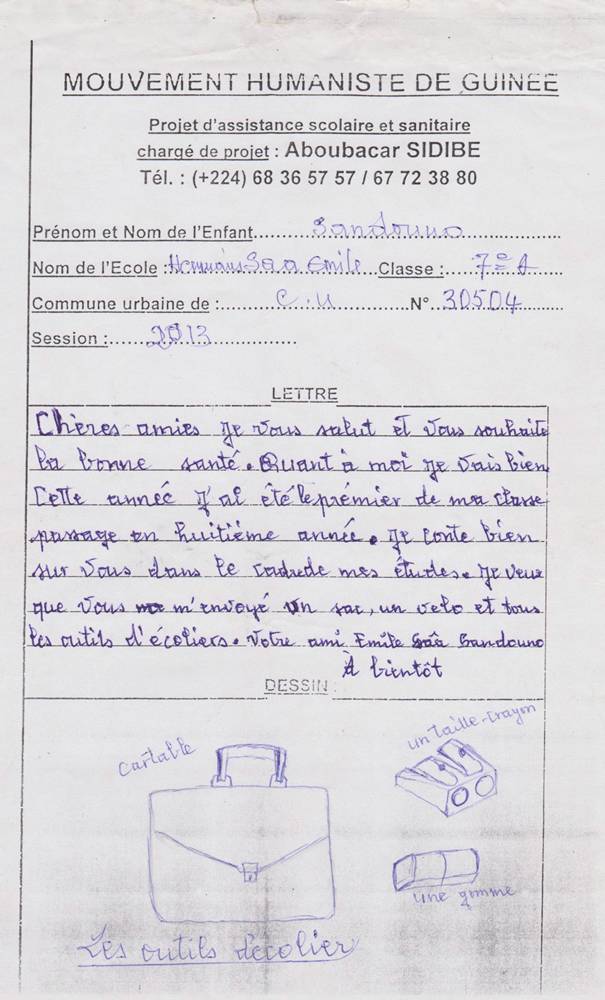 MOUVEMENT HUMANISTE DE GUINEE
Projet d'assistance scolaire et sanitaire
chargé de projet : Aboubacar SIDIBE
Tél. : (+224) 68 36 57 57 / 67 72 38 80
Prénom et Nom de l'Enfant Sandouno
Nom de l'Ecole : Saa Emile Classe : 7e A
Commune urbaine de : C.U N° 30504
Session : 2013
LETTRE
Chères amies je vous salut et vous souhaite
la bonne santé. Quant à moi je vais bien
Cette année j'ai été le prémier de ma classe
passage en huitième année. Je conte bien
sur vous dans le cadre de mes études. Je veux
que vous m'envoyé un sac, un velo et tous
les outils d'écoliers. Votre ami Emile Saa Sandouno
À bientôt
DESSIN :
Cartable
un taille-crayon
une gomme
Les outils d'écolier